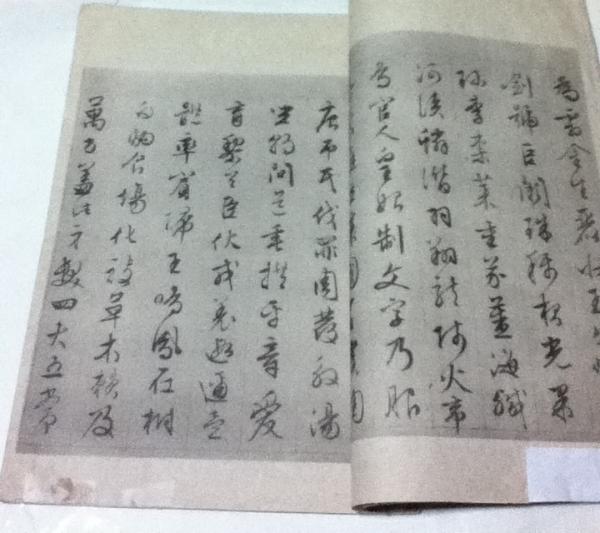 為霜金生麗水玉出
劍號巨闕珠稱夜光果
珍李柰菜重芥薑海鹹
河淡鱗潛羽翔龍師火帝
鳥官人皇始制文字乃服
唐弔民伐罪周發殷湯
坐朝問道垂拱平章愛
育黎首臣伏戎羌遐邇壹
體率賓歸王鳴鳳在樹
白駒食場化被草木賴及
萬方蓋此身髮四大五常